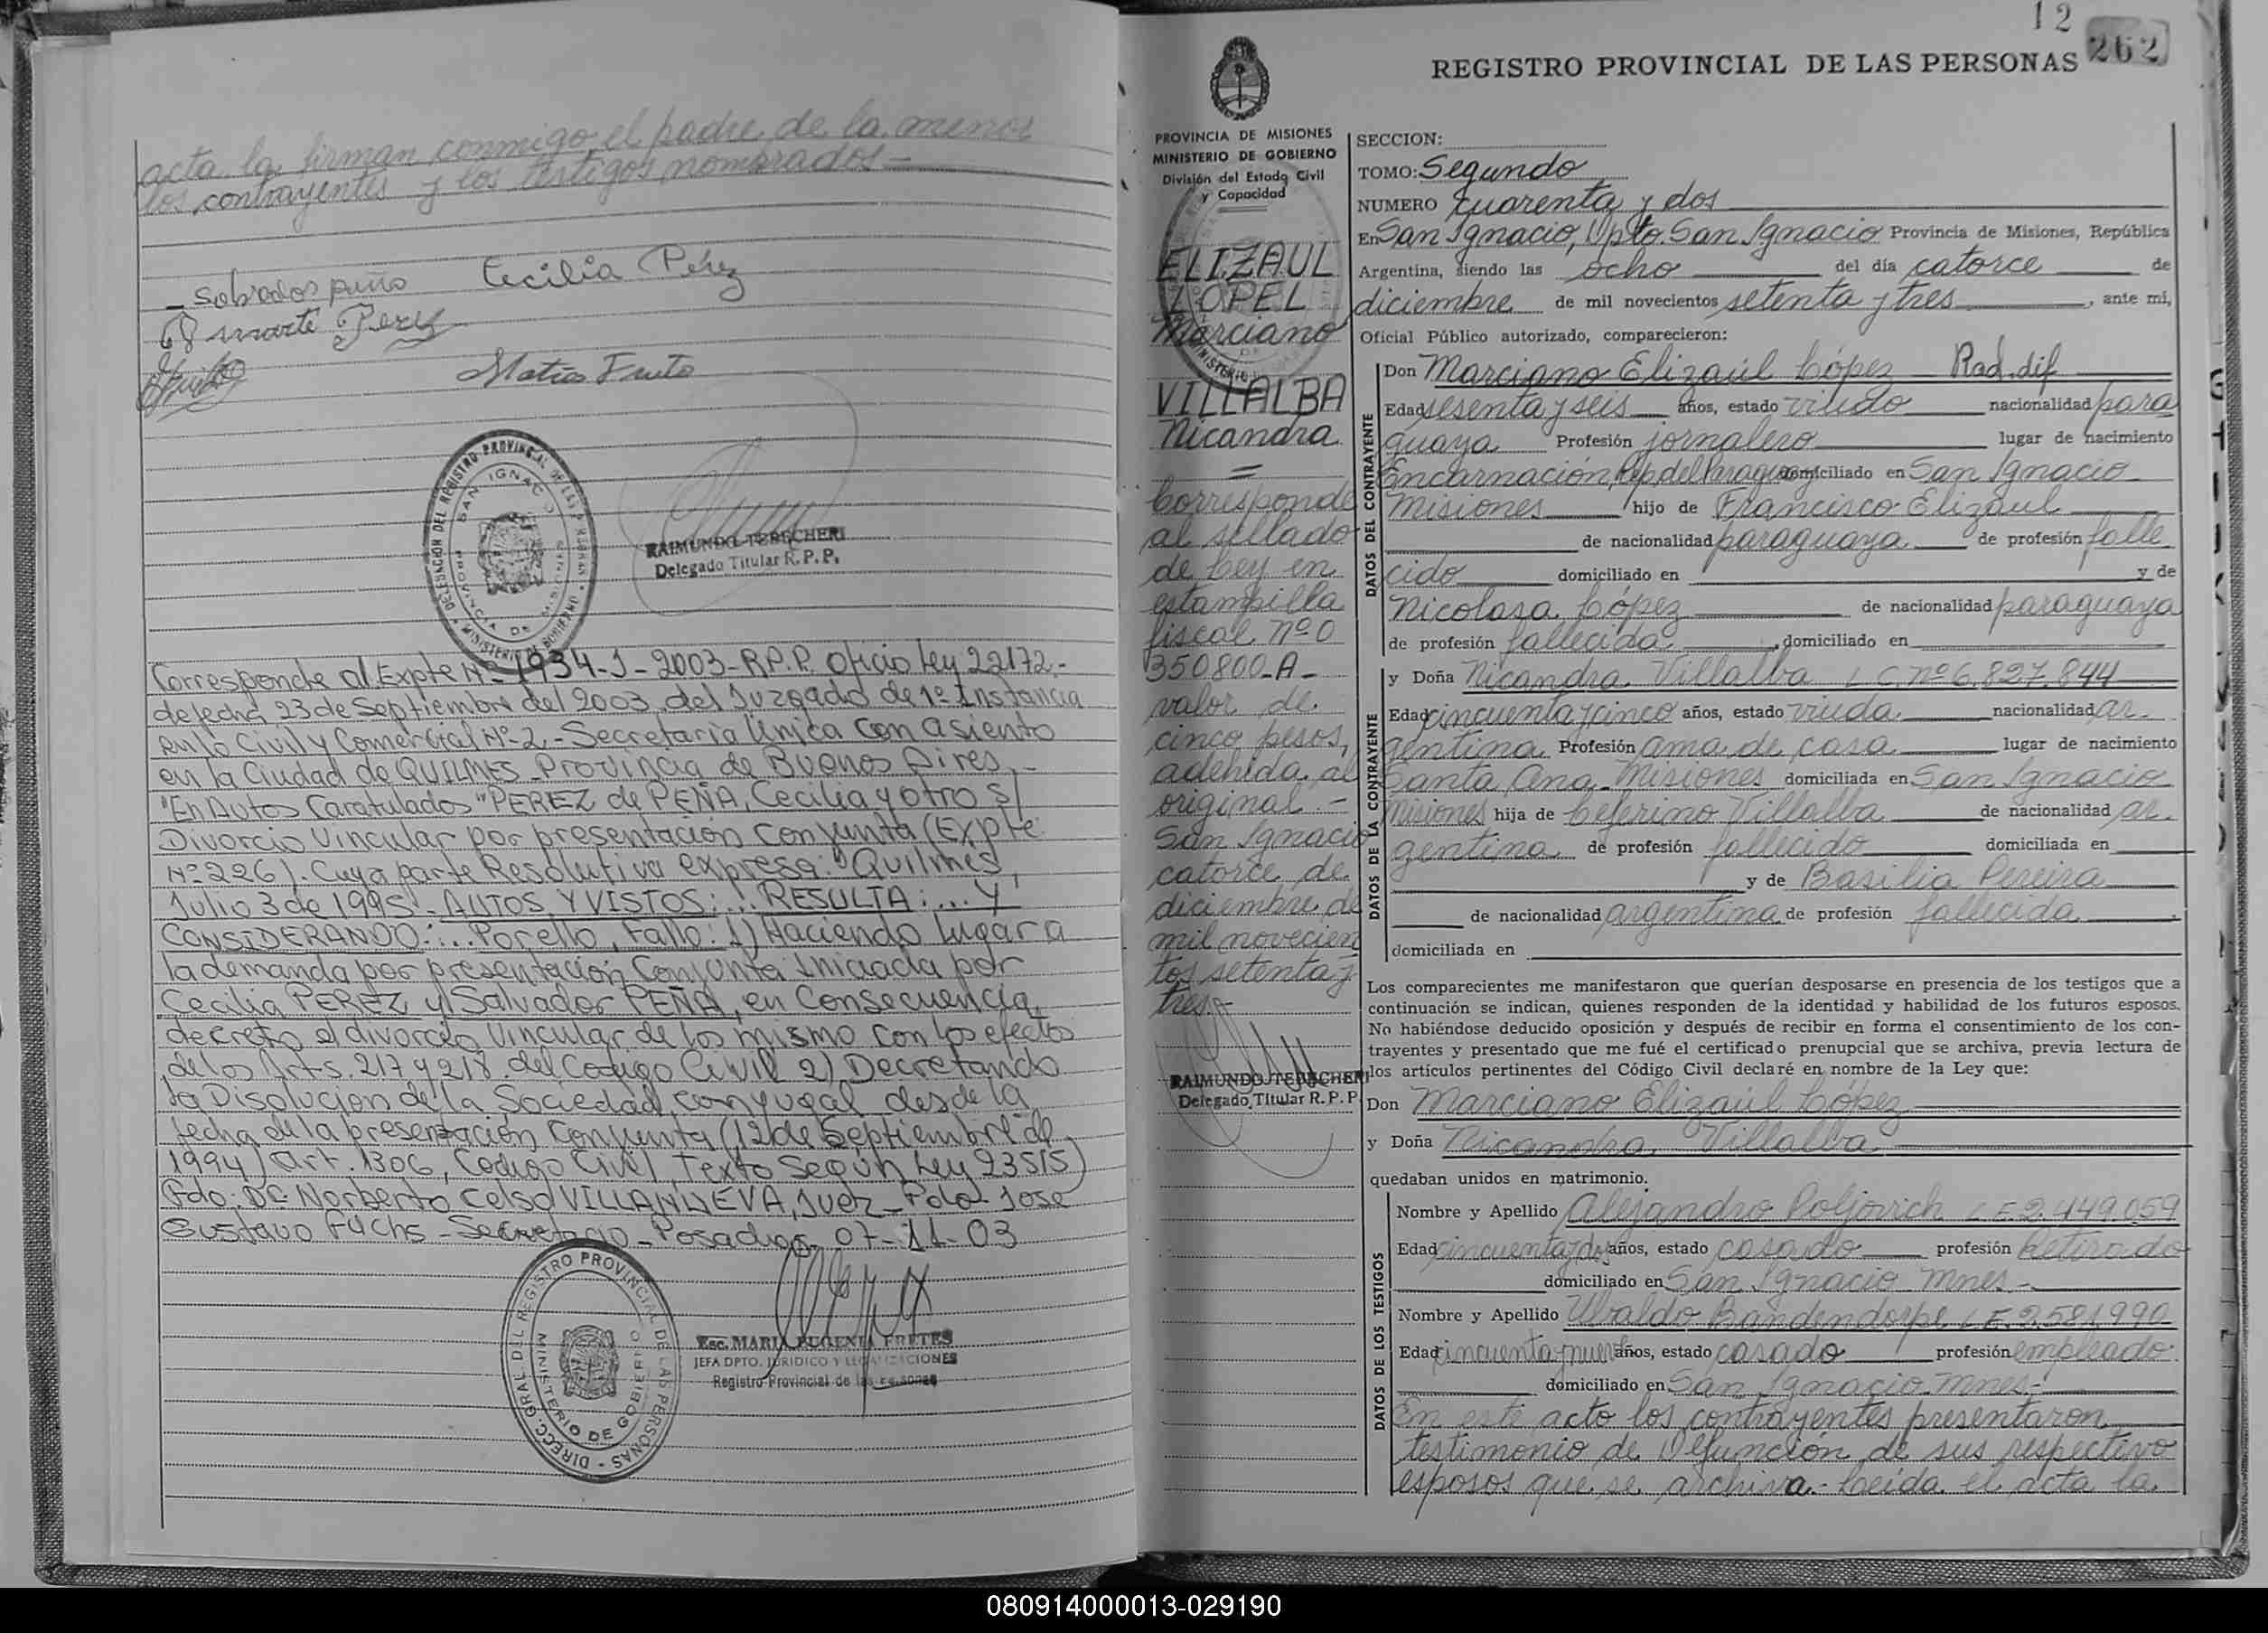 acta la firman conmigo, el padre de la menor
los contrayentes y los testigos nombrados-
Cecilia Pérez
Matías Fruto
DELEGACION DEL REGISTRO PROVINCIAL DE LAS PERSONAS
SAN IGNACIO
PROVINCIA DE MISIONES
MINISTERIO DE GOBIERNO
RAIMUNDO TERECHERI
Delegado Titular R. P. P.
Corresponde al Expte Nº 1934-J-2003-R.P.P. Oficio Ley 22172.-
de fecha 23 de Septiembre del 2003, del Juzgado de 1º Instancia
en lo Civil y Comercial Nº-2-Secretaria Unica con asiento
en la Ciudad de QUILMES-Provincia de Buenos Aires,-
"En Autos Caratulados "PEREZ de PEÑA, Cecilia y otro s/
Divorcio Vincular por presentación Conjunta (Expte
Nº 226). Cuya parte Resolutiva expresa: "Quilmes,
Julio 3 de 1995-AUTOS Y VISTOS:... RESULTA:... Y
CONSIDERANDO:... Por ello, Fallo: 1) Haciendo Lugar a
la demanda por presentación Conjunta Iniciada por
Cecilia PEREZ y Salvador PEÑA, en Consecuencia,
decreto el divorcio Vincular de los mismo con los efectos
de los Arts. 217 y 218. del Codigo Civil 2) Decretando
la Disolución de la Sociedad conyugal desde la
fecha de la presentación Conjunta (12 de Septiembre de
1994) art. 1306, Codigo Civil, Texto Según Ley 23515)
Fdo: Dr. Norberto Celso VILLANUEVA, Juez-Fdo-José
Gustavo Fuchs-Secretario-Posadas, 07-11-03
DIRECC. GRAL. DEL REGISTRO PROVINCIAL DE LAS PERSONAS
MINISTERIO DE GOBIERNO
Esc. MARIA EUGENIA FRETES
JEFA DPTO. JURIDICO Y LEGALIZACIONES
Registro Provincial de las Personas
12
262
REGISTRO PROVINCIAL DE LAS PERSONAS
PROVINCIA DE MISIONES
MINISTERIO DE GOBIERNO
División del Estado Civil
y Capacidad
ELIZAUL
LOPEL
Marciano
VILLALBA
Nicandra
=
Corresponde
al sellado
de Ley en
estampilla
fiscal nº 0
350800-A-
valor de
cinco pesos,
adehida al
original.-
San Ignacio
catorce de
diciembre de
mil novecien
tos setenta y
tres.-
RAIMUNDO TERECHERI
Delegado Titular R. P. P.
SECCION:
TOMO: Segundo
NUMERO cuarenta y dos
En San Ignacio, Dpto. San Ignacio Provincia de Misiones, República
Argentina, siendo las ocho del día catorce de
diciembre de mil novecientos setenta y tres, ante mi,
Oficial Público autorizado, comparecieron:
DATOS DEL CONTRAYENTE
Don Marciano Elizaúl López Rad. dif
Edad sesenta y seis años, estado viudo nacionalidad para
guaya Profesión jornalero lugar de nacimiento
Encarnación, Rep. del Paraguay domiciliado en San Ignacio
Misiones hijo de Francisco Elizaul
de nacionalidad paraguaya de profesión falle
cido domiciliado en y de
Nicolasa López de nacionalidad paraguaya
de profesión fallecida, domiciliado en
DATOS DE LA CONTRAYENTE
y Doña Nicandra Villalba L.C. nº 6.827.844
Edad cincuenta y cinco años, estado viuda nacionalidad ar-
gentina Profesión ama de casa lugar de nacimiento
Santa Ana-Misiones domiciliada en San Ignacio
Misiones hija de Ceferino Villalba de nacionalidad ar-
gentina de profesión fallecido domiciliada en
y de Basilia Pereira
de nacionalidad argentina de profesión fallecida,
domiciliada en
Los comparecientes me manifestaron que querían desposarse en presencia de los testigos que a
continuación se indican, quienes responden de la identidad y habilidad de los futuros esposos.
No habiéndose deducido oposición y después de recibir en forma el consentimiento de los con-
trayentes y presentado que me fué el certificado prenupcial que se archiva, previa lectura de
los artículos pertinentes del Código Civil declaré en nombre de la Ley que:
Don Marciano Elizaúl López
y Doña Nicandra Villalba
quedaban unidos en matrimonio.
DATOS DE LOS TESTIGOS
Nombre y Apellido Alejandro Poljovich L.E. 2.449.059
Edad cincuenta y dos años, estado casado profesión Retirado
domiciliado en San Ignacio Mnes-
Nombre y Apellido Ubaldo Bandendorpe L.E. 2.581.990
Edad cincuenta y nueve años, estado casado profesión empleado
domiciliado en San Ignacio Mnes-
En este acto los contrayentes presentaron
testimonio de Defunción de sus respectivo
esposos que se archiva.- Leída el acta la
080914000013-029190